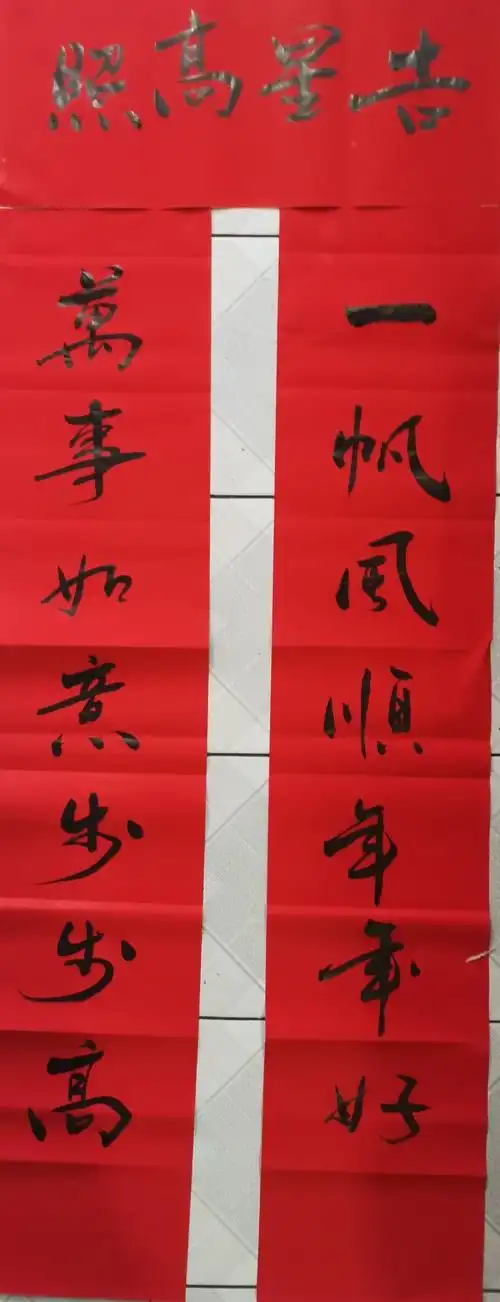 吉星高照
一帆風順年年好
萬事如意步步高